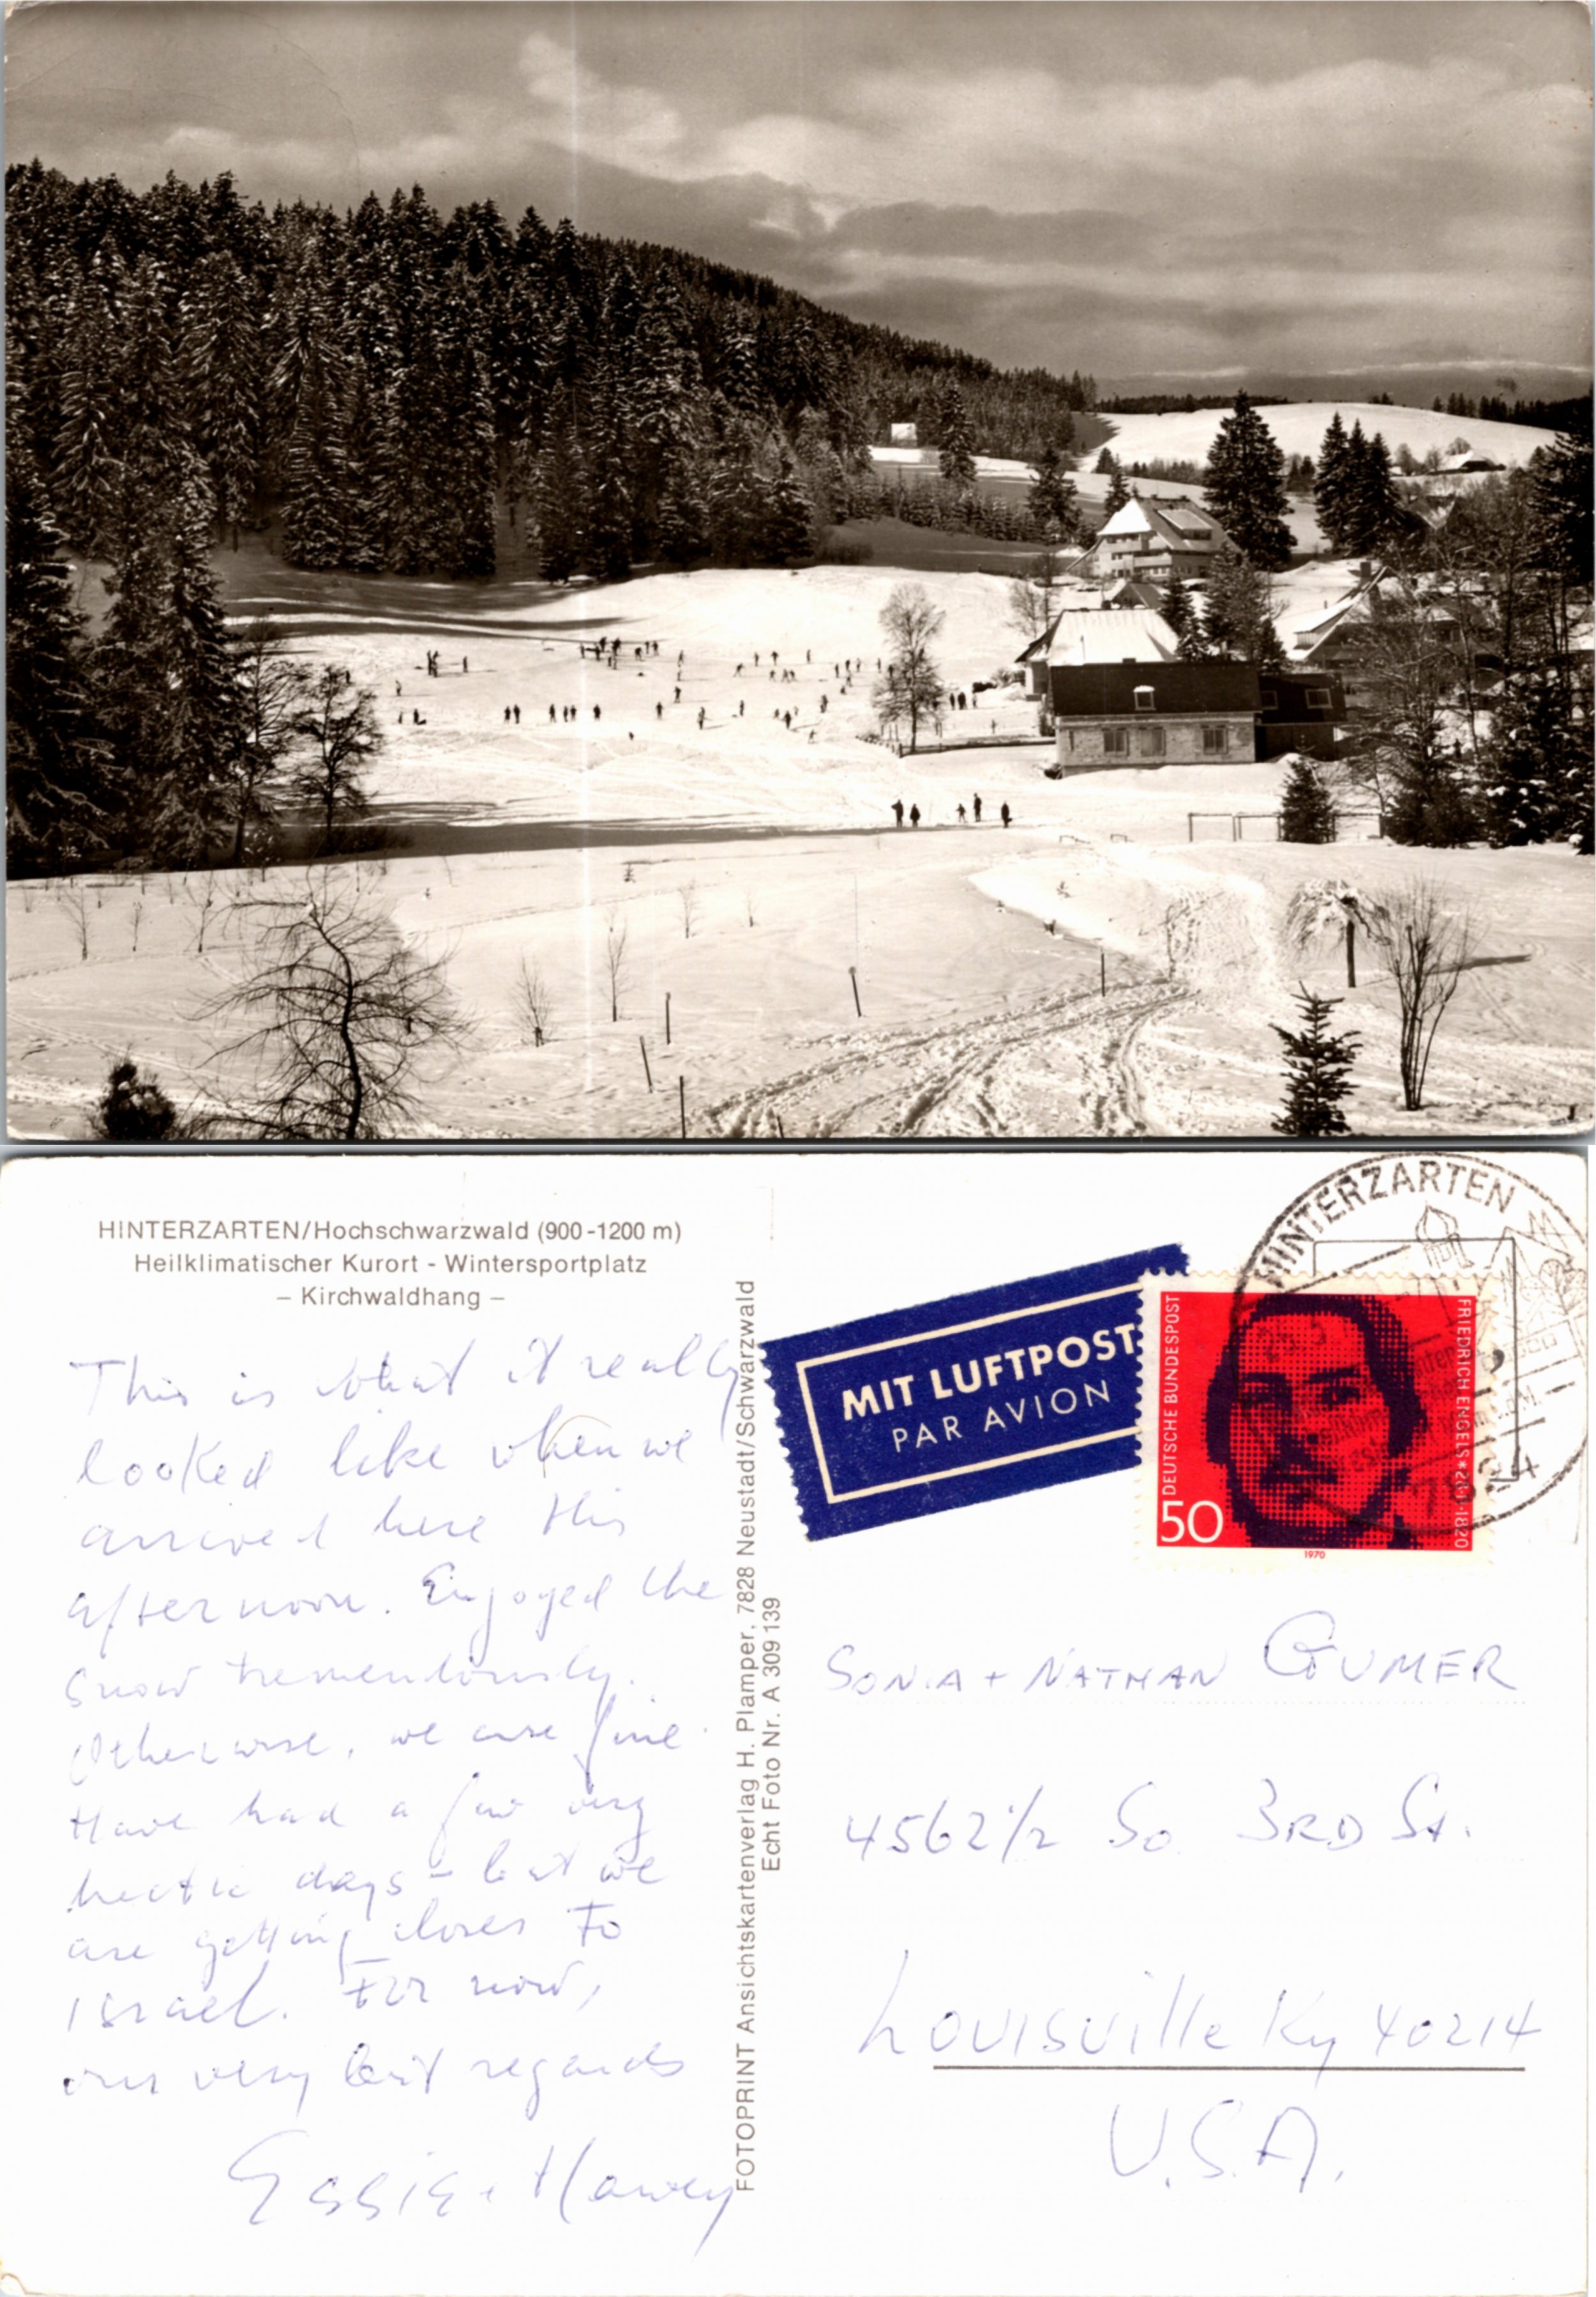 HINTERZARTEN/Hochschwarzwald (900-1200 m)
Heilklimatischer Kurort - Wintersportplatz
– Kirchwaldhang –
This is what it really
looked like when we
arrived here this
afternoon. Enjoyed the
snow tremendously.
Otherwise, we are fine.
Have had a few very
hectic days - but we
are getting closer to
Israel. For now,
our very best regards
Essie + Harvey
FOTOPRINT Ansichtskartenverlag H. Plamper, 7828 Neustadt/Schwarzwald
Echt Foto Nr. A 309 139
MIT LUFTPOST
PAR AVION
HINTERZARTEN
DEUTSCHE BUNDESPOST
FRIEDRICH ENGELS * 28.11.1820
50
1970
7824
SONIA + NATHAN GUMER
4562 1/2 So 3RD St.
Louisville Ky 40214
U.S.A.